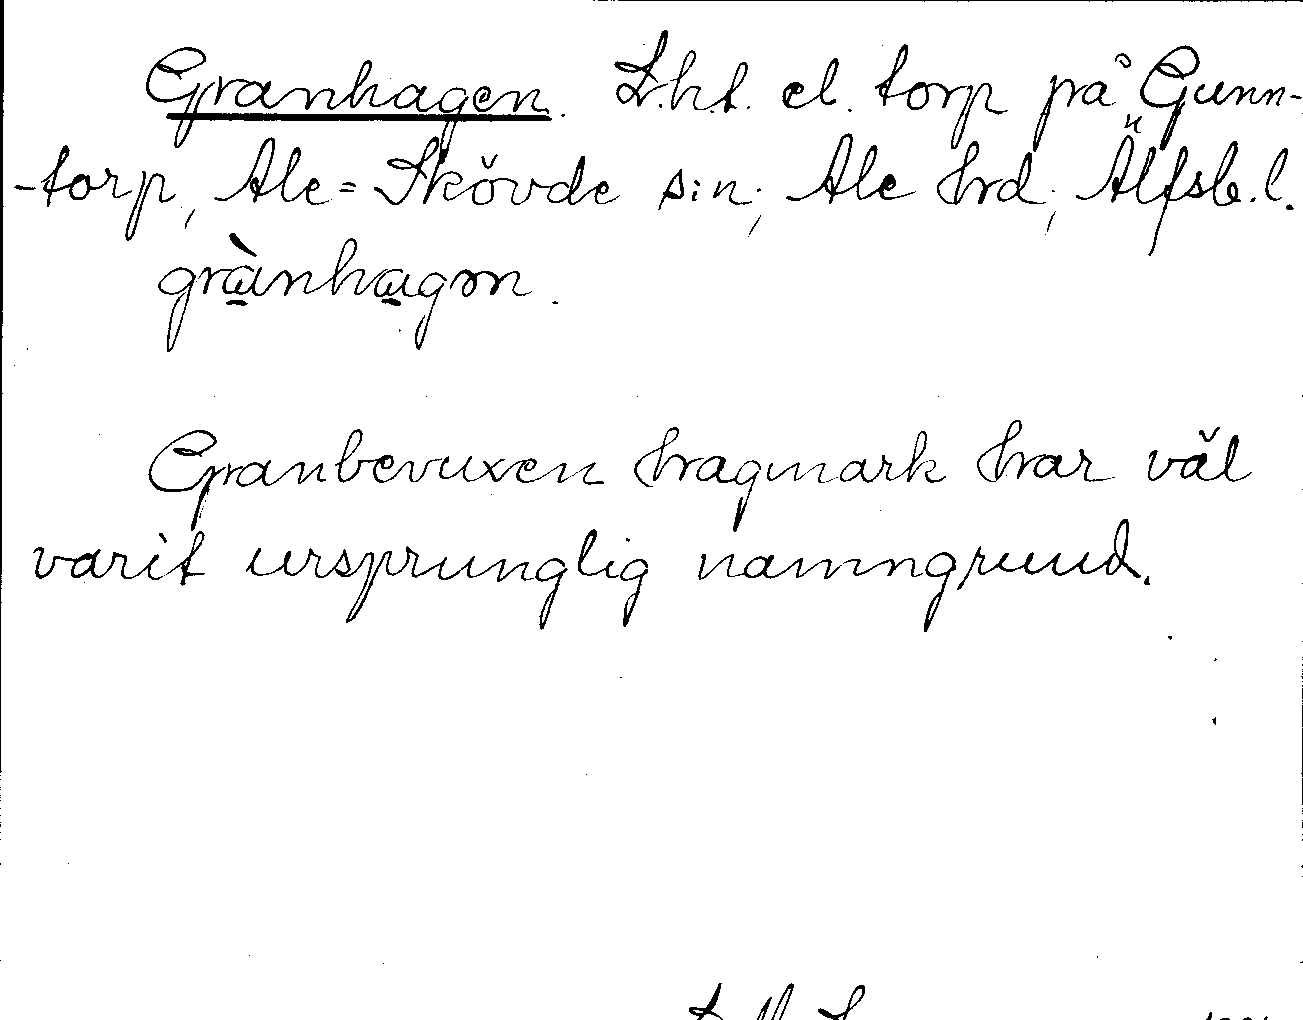 Granhagen. L.h.t. el. torp på Gunn-
-torp, Ale=Skövde s:n, Ale hrd, Älfsb.l.
grànhagən.
Granbevuxen hagmark har väl
varit ursprunglig namngrund.